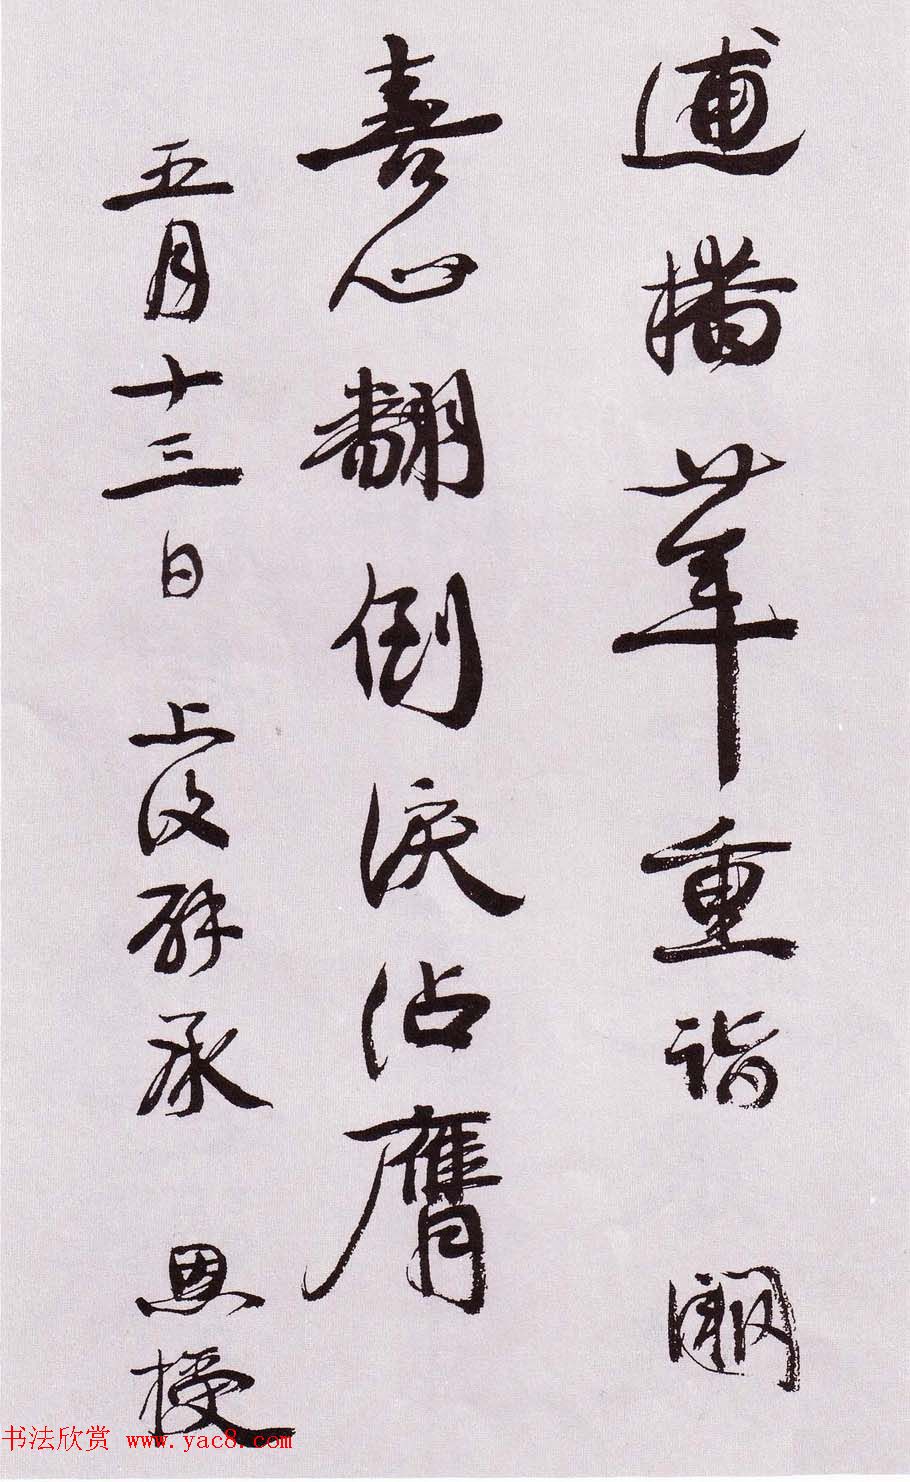 逋播廿年重詣 闕
喜心翻倒淚沾膺
五月十三日 上承 恩授
书法欣赏 www.yac8.com